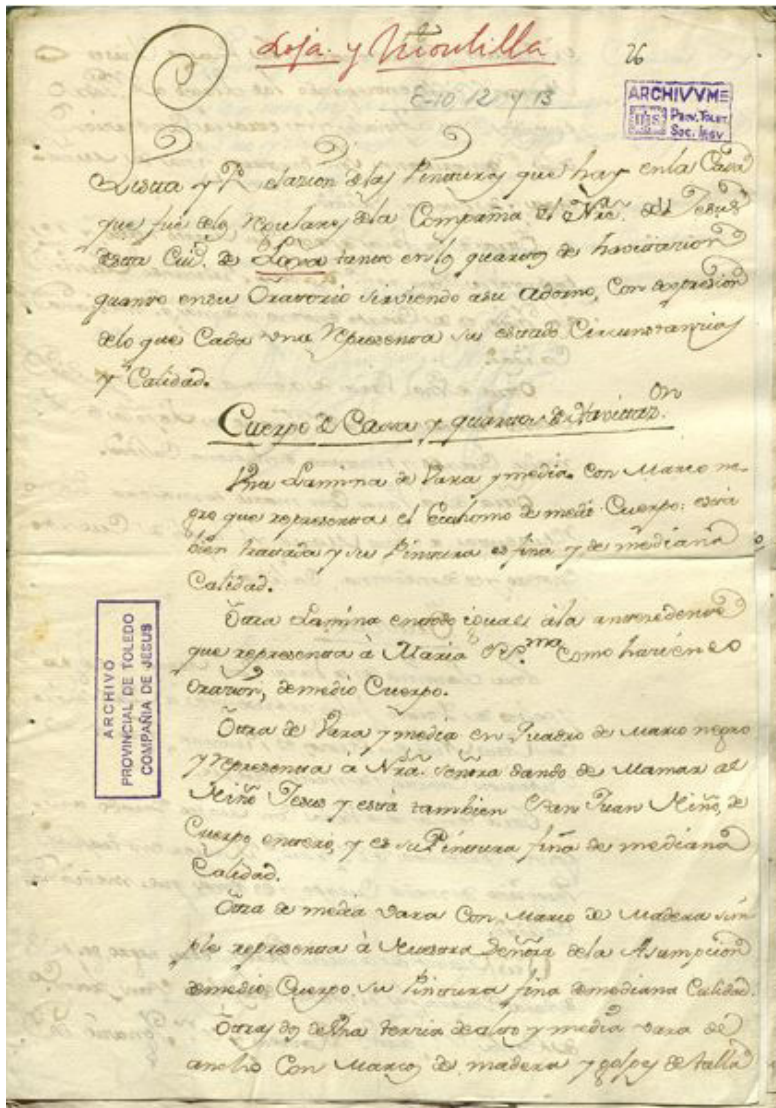 Loja. y Montilla
26
E-10 12 y 13
ARCHIVVM
IHS PROV. TOLET.
SOC. IESV
Lista y Relazion de las Pinturas que hay en la Casa
que fue de los Regulares de la Compañia de Nrõ. de Jesus
desta Ciud. de Loxa tanto en los quartos de havitazion
quanto en su Oratorio sirviendo a su adorno, Con expresion
de lo que Cada una representa su estado Circunstanzias
y Calidad.
Cuerpo de Cassa y quartos de Havitaz.on
Una Lamina de Vara y media Con Marco ne-
gro que representa el Ecehomo de medio Cuerpo: está
bien tratada y su Pintura es fina y de mediana
Calidad.
Otra Lamina en todo igual à la antezedente
que representa à Maria SS.ma Como hazien do
Orazion, de medio Cuerpo.
Otra de Vara y media en Quadro de Marco negro
y representa à Nrã. Señora dando de Mamar al
Niño Jesus y está tambien San Juan Niño, de
Cuerpo entero, y es su Pintura fina de mediana
Calidad.
Otra de media vara Con Marco de Madera sim-
ple representa à Nuestra Señora de la Asumpcion
de medio Cuerpo su Pintura fina de mediana Calidad.
Otras dos de Una tercia de alto y media vara de
ancho Con Marcos de madera y golpes de talla
ARCHIVO
PROVINCIAL DE TOLEDO
COMPAÑIA DE JESUS